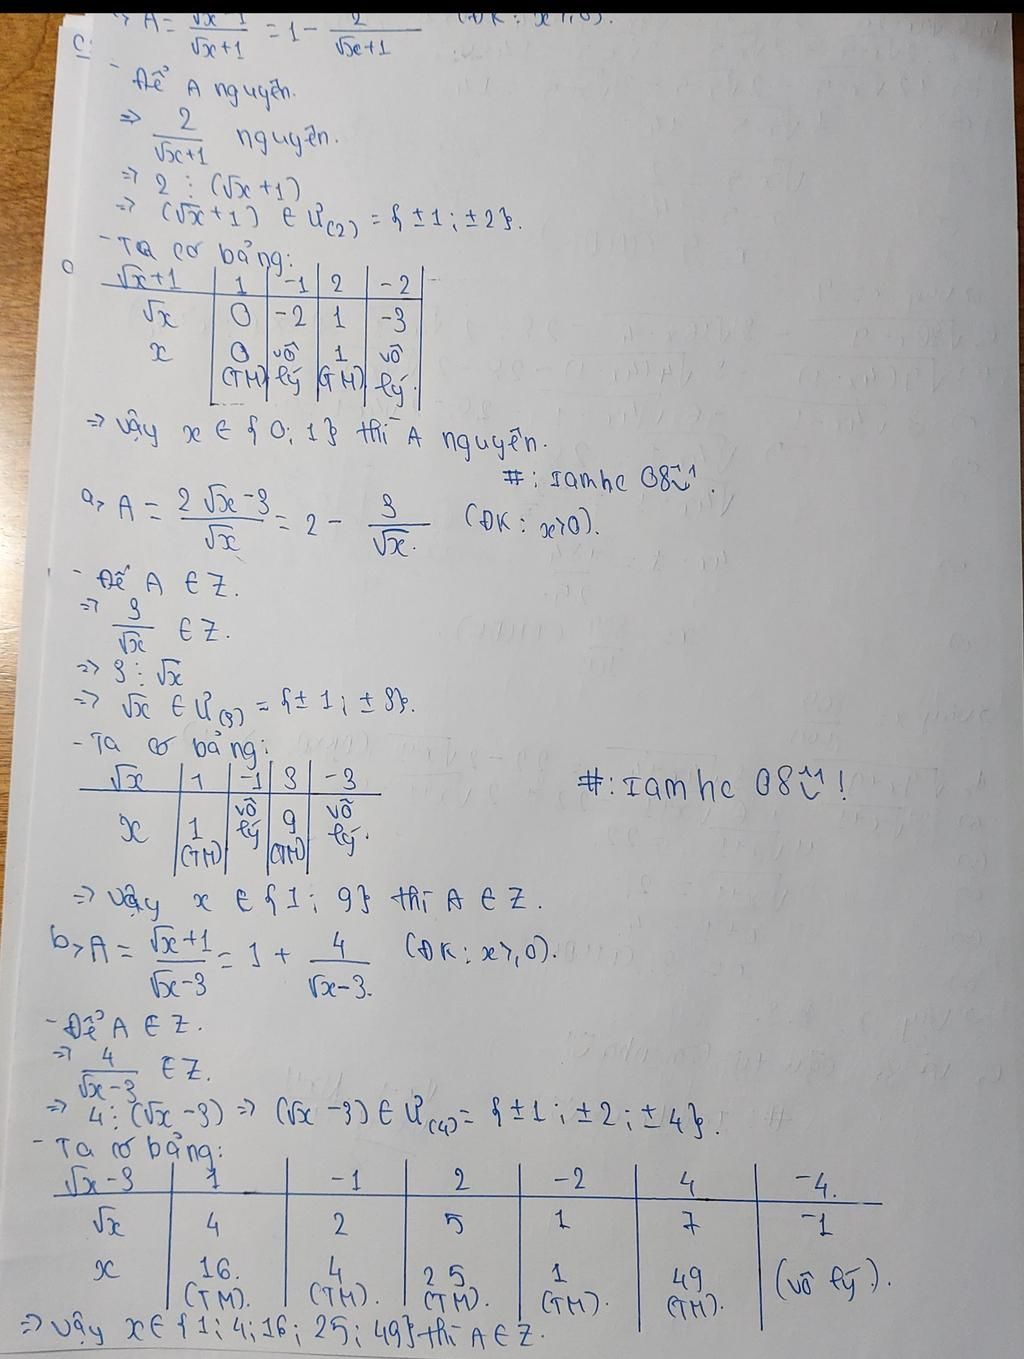 => A = √x-1/√x+1 = 1 - 2/√x+1 (ĐK: x⩾0).
c,
- Để A nguyên.
=> 2/√x+1 nguyên.
=> 2 ⋮ (√x+1)
=> (√x+1) ∈ Ư(2) = {±1; ±2}.
- Ta có bảng:
√x+1 | 1 | -1 | 2 | -2
√x | 0 | -2 | 1 | -3
x | 0 (TM) | vô lý | 1 (TM) | vô lý.
=> Vậy x ∈ {0; 1} thì A nguyên.
#: Iamhc 08
a, A = 2√x-3/√x = 2 - 3/√x. (ĐK: x>0).
- Để A ∈ Z.
=> 3/√x ∈ Z.
=> 3 ⋮ √x
=> √x ∈ Ư(3) = {±1; ±3}.
- Ta có bảng:
√x | 1 | -1 | 3 | -3
x | 1 (TM) | vô lý | 9 (TM) | vô lý.
#: Iamhc 08 !
=> Vậy x ∈ {1; 9} thì A ∈ Z.
b, A = √x+1/√x-3 = 1 + 4/√x-3. (ĐK: x⩾0).
- Để A ∈ Z.
=> 4/√x-3 ∈ Z.
=> 4 ⋮ (√x-3) => (√x-3) ∈ Ư(4) = {±1; ±2; ±4}.
- Ta có bảng:
√x-3 | 1 | -1 | 2 | -2 | 4 | -4.
√x | 4 | 2 | 5 | 1 | 7 | -1
x | 16. (TM). | 4 (TM). | 25 (TM). | 1 (TM). | 49 (TM). | (vô lý).
=> Vậy x ∈ {1; 4; 16; 25; 49} thì A ∈ Z.